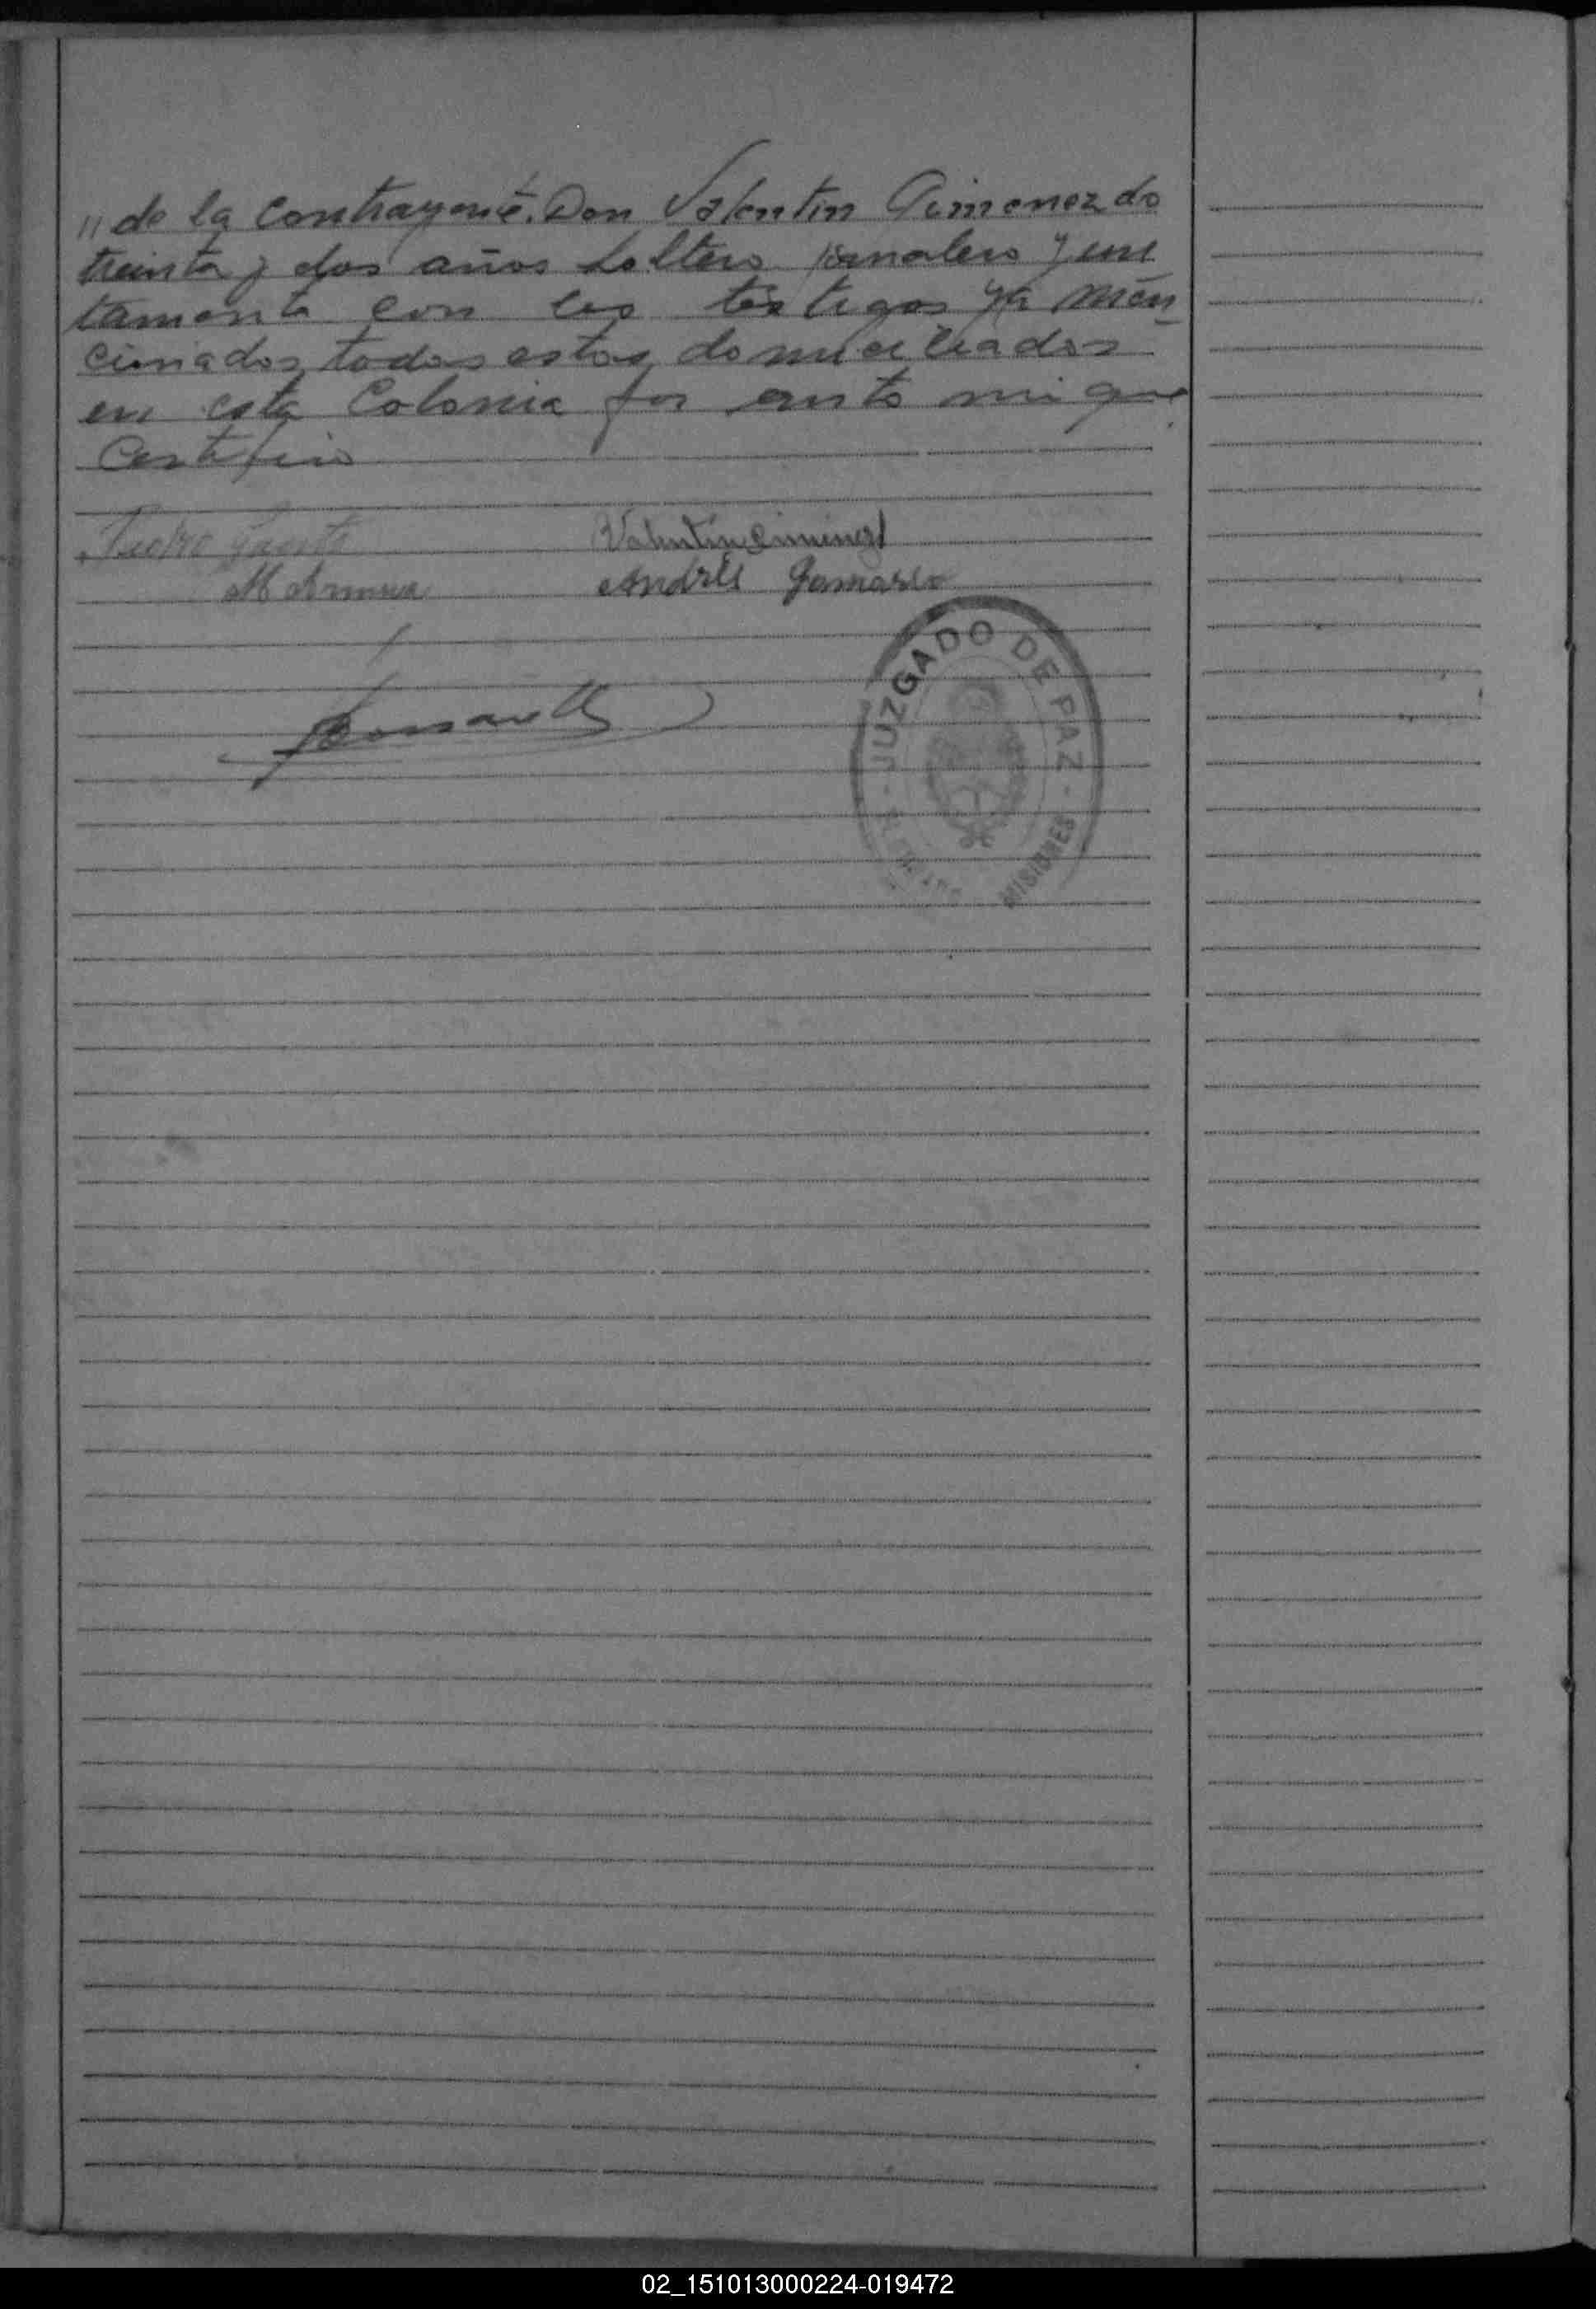 " de la contrayente. Don Valentin Gimenez de
treinta y dos años soltero jornalero y jun
tamente con los testigos ya men
cionados, todos estos domiciliados
en esta Colonia por ante mi que
Certifico
Pedro
Valentin Jimenez
M
Andrés Gamarra
JUZGADO DE PAZ
MISIONES
02_151013000224-019472